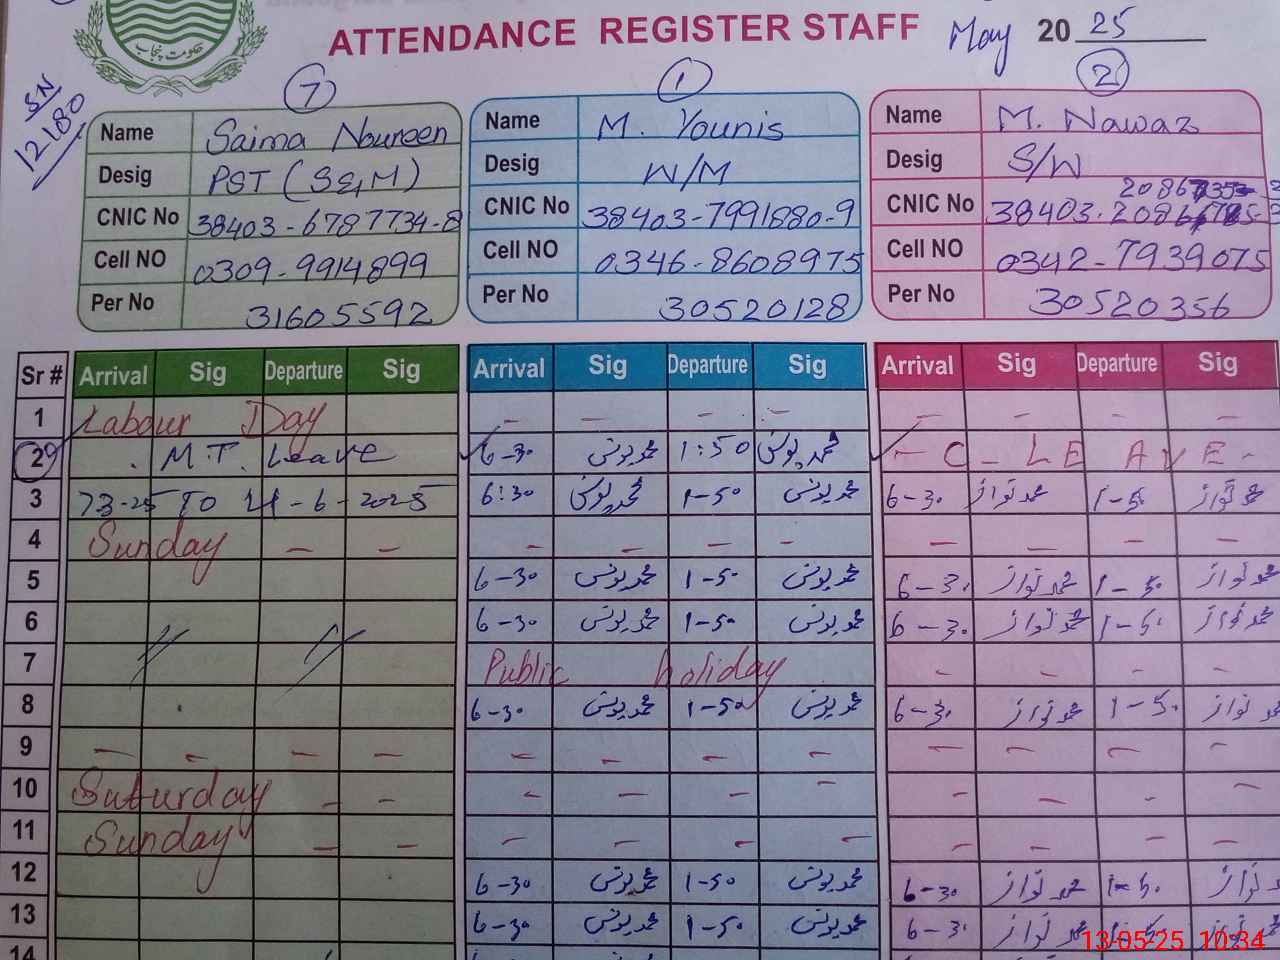 ATTENDANCE REGISTER STAFF May 2025
حکومت پنجاب
SN
12180
7
Name Saima Noureen
Desig PST (SE,M)
CNIC No 38403-6787734-8
Cell NO 0309-9914899
Per No 31605592
1
Name M. Younis
Desig W/M
CNIC No 38403-7991880-9
Cell NO 0346-8608975
Per No 30520128
2
Name M. Nawaz
Desig S/W
CNIC No 38403-
Cell NO 0342-7939075
Per No 30520356
Sr # Arrival Sig Departure Sig Arrival Sig Departure Sig Arrival Sig Departure Sig
1 Labour Day - - - - - - - -
2 M.T. Leave 6-30 محمد یونس 1:50 محمد یونس - C - LEAVE -
3 7-3-25 TO 4-6-2025 6:30 محمد یونس 1-50 محمد یونس 6-30 محمد نواز 1-50 محمد نواز
4 Sunday - - - - - - - - - -
5 6-30 محمد یونس 1-50 محمد یونس 6-30 محمد نواز 1-50 محمد نواز
6 6-30 محمد یونس 1-50 محمد یونس 6-30 محمد نواز 1-50 محمد نواز
7 Public holiday - - - -
8 6-30 محمد یونس 1-50 محمد یونس 6-30 محمد نواز 1-50 محمد نواز
9 - - - - - - - - - - - -
10 Saturday - - - - - - - - - -
11 Sunday - - - - - - - - - -
12 6-30 محمد یونس 1-50 محمد یونس 6-30 محمد نواز 1-50 محمد نواز
13 6-30 محمد یونس 1-50 محمد یونس 6-30 محمد نواز 1-50 محمد نواز
14
13-05-25 10:34